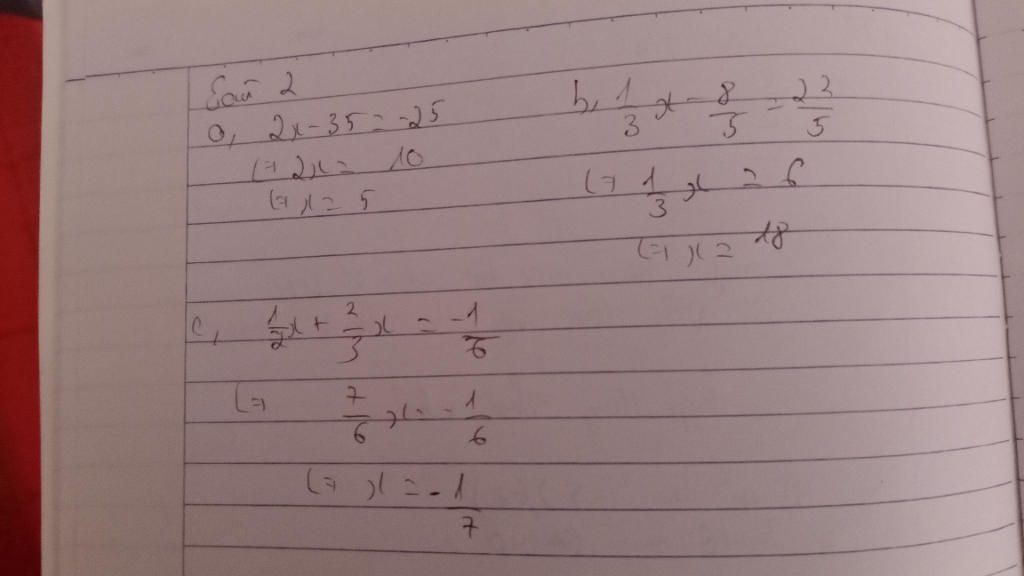 Bài 2
a, 2x - 35 = -25
(=) 2x = 10
(=) x = 5
b, 1/3 x - 8/5 = 22/5
(=) 1/3 x = 6
(=) x = 18
c, 1/2 x + 2/3 x = -1/6
(=) 7/6 x = -1/6
(=) x = -1/7